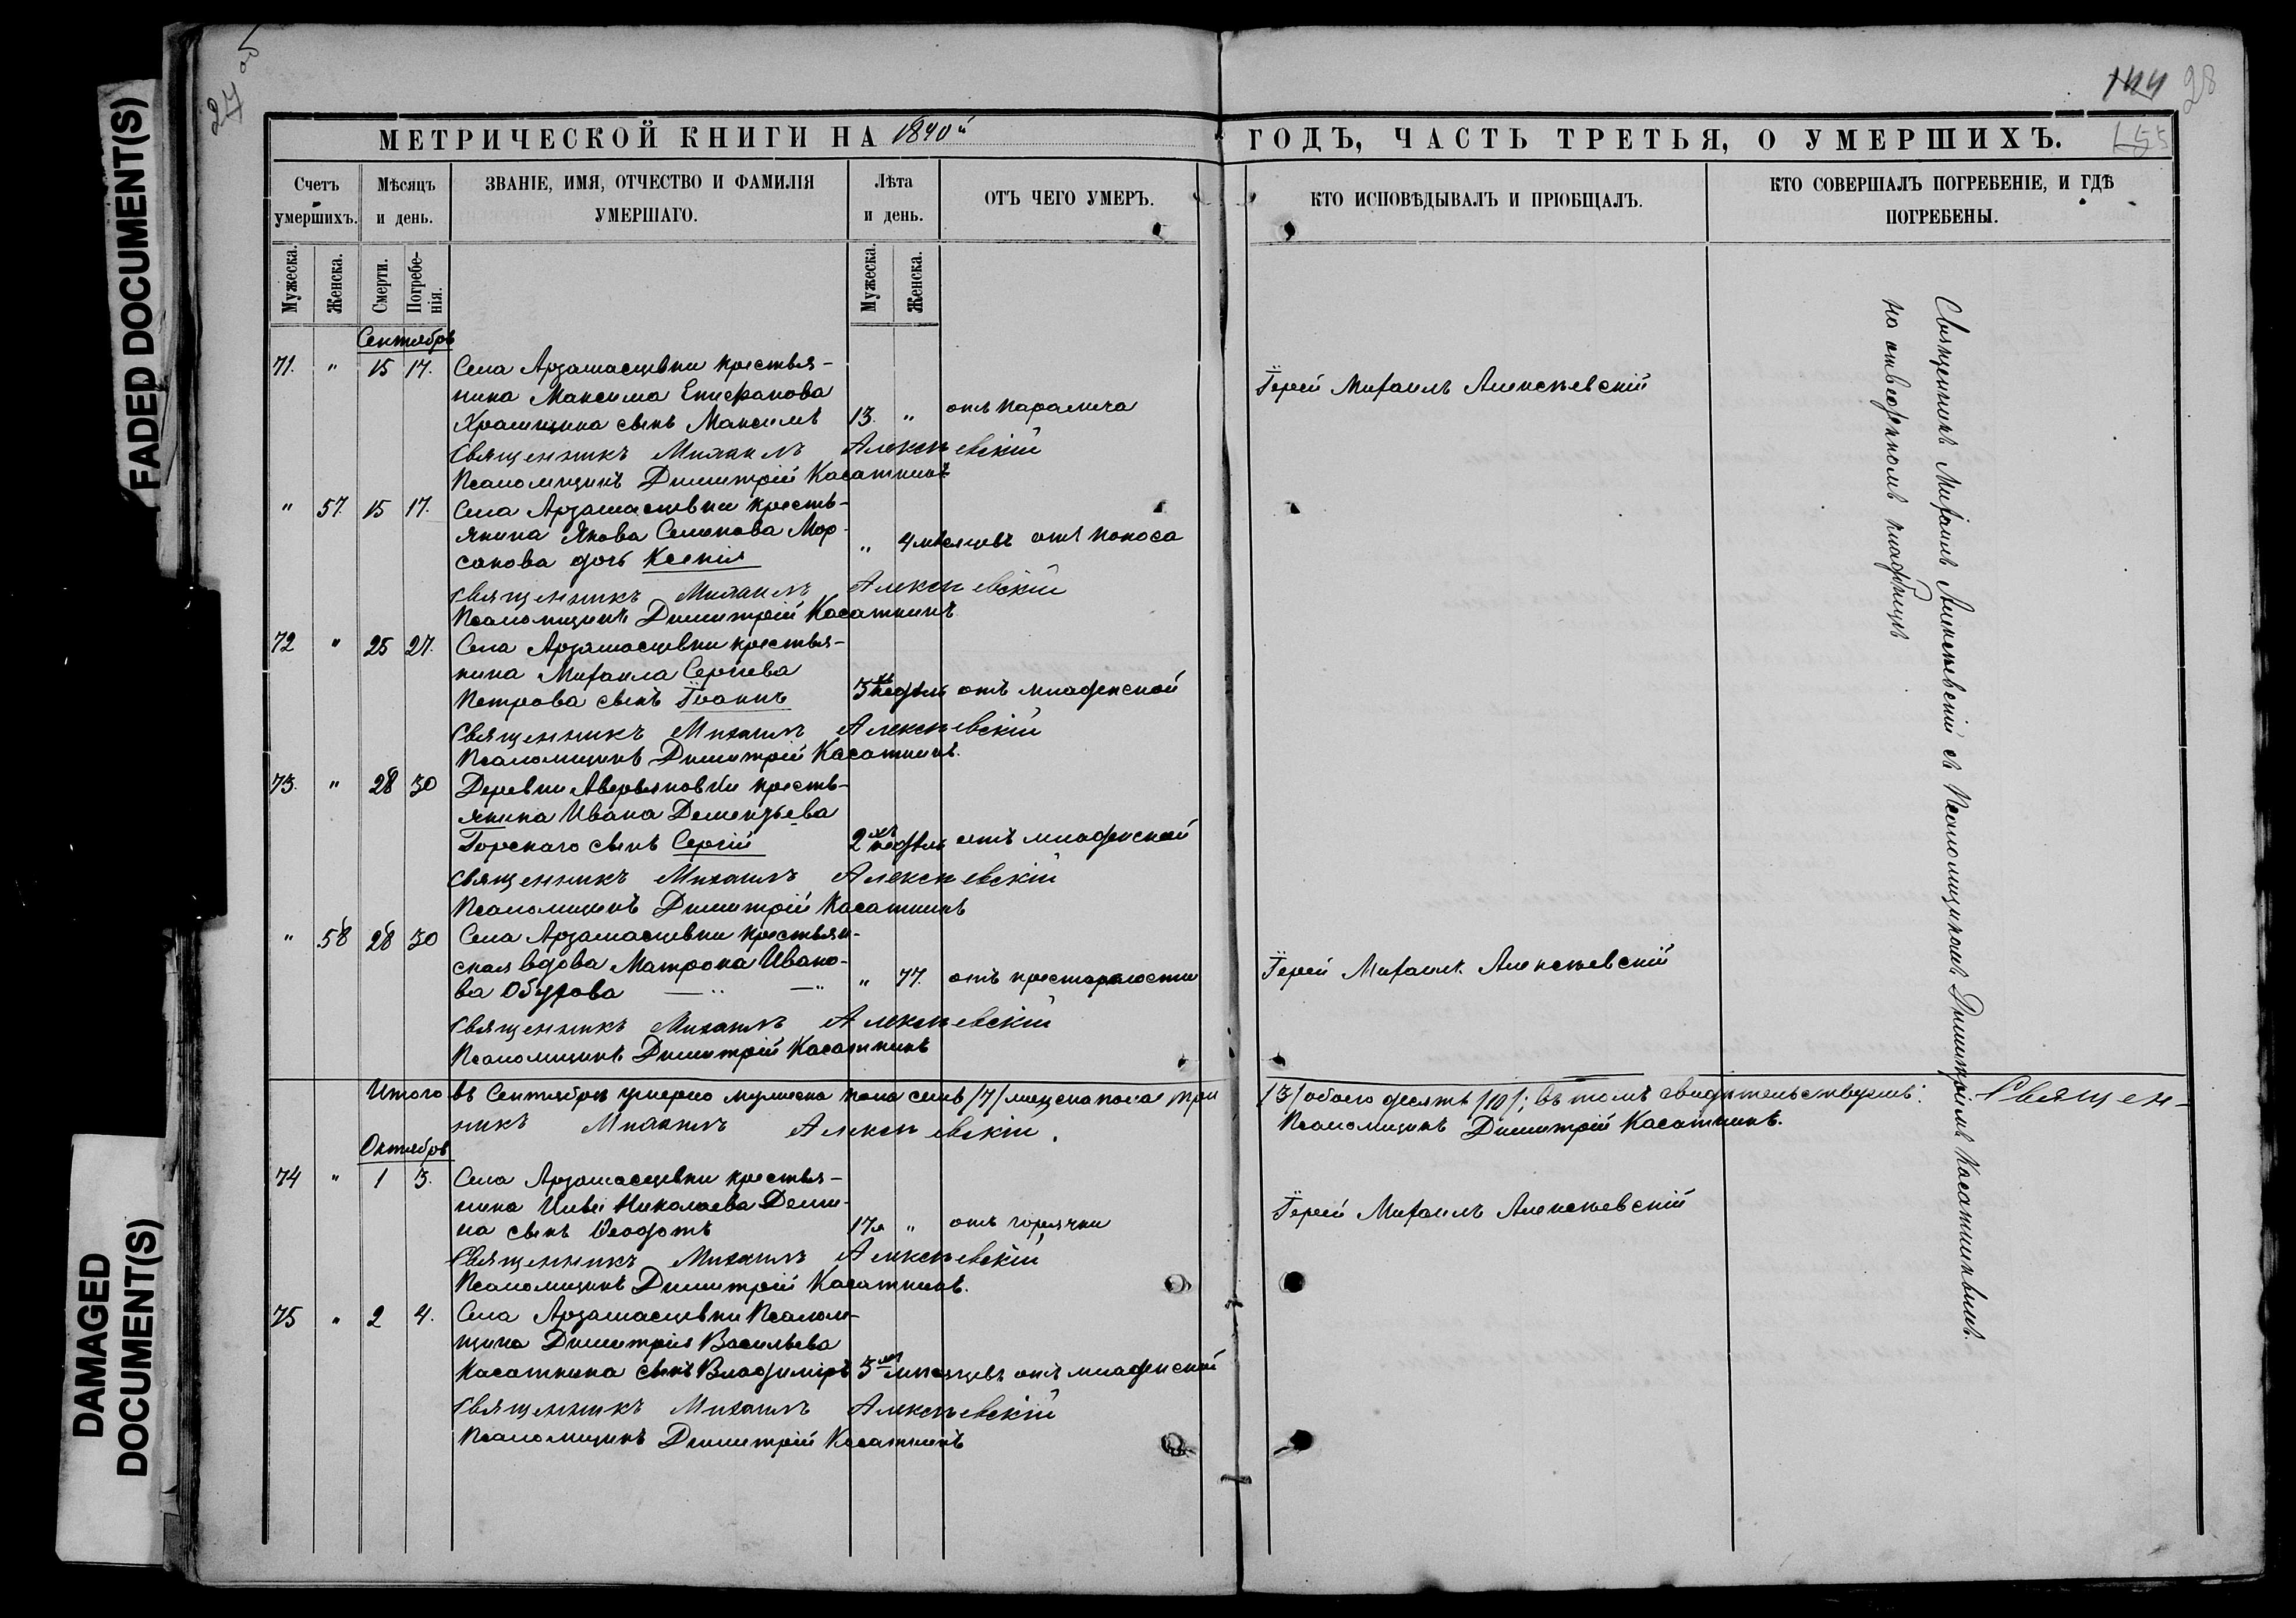 FADED DOCUMENT(S)
DAMAGED
DOCUMENT(S)
27 об
144 28
155
МЕТРИЧЕСКОЙ КНИГИ НА 1840й
ГОДЪ, ЧАСТЬ ТРЕТЬЯ, О УМЕРШИХЪ.
Счетъ умершихъ.
Мѣсяцъ и день.
ЗВАНІЕ, ИМЯ, ОТЧЕСТВО И ФАМИЛІЯ
УМЕРШАГО.
Лѣта
и день.
ОТЪ ЧЕГО УМЕРЪ.
КТО ИСПОВѢДЫВАЛЪ И ПРІОБЩАЛЪ.
КТО СОВЕРШАЛЪ ПОГРЕБЕНІЕ, И ГДѢ
ПОГРЕБЕНЫ.
Мужеска.
Женска.
Смерти.
Погребе-
нія.
Мужеска.
Женска.
Сентябрь
71. " 15 17. Села Арзамасцевки крестья-
нина Максима Епифанова
Храмцина сынъ Максимъ 13. " отъ паралича
Іерей Михаилъ Алексѣевскій
Священникъ Михаилъ Алексѣевскій
Псаломщикъ Димитрій Касаткинъ
" 57. 15 17. Села Арзамасцевки кресть-
янина Якова Семенова Мор-
сакова дочь Ксенія " 4 мѣсяцевъ отъ поноса
Священникъ Михаилъ Алексѣевскій
Псаломщикъ Димитрій Касаткинъ
72 " 25 27. Села Арзамасцевки крестья-
нина Михаила Сергѣева
Петрова сынъ Іоаннъ 3хъ недѣль отъ младенской
Священникъ Михаилъ Алексѣевскій
Псаломщикъ Димитрій Касаткинъ.
73. " 28 30 Деревни Аверьяновки кресть-
янина Ивана Дементьева
Горскаго сынъ Сергій 2хъ недѣль отъ младенской
Священникъ Михаилъ Алексѣевскій
Псаломщикъ Димитрій Касаткинъ
" 58 28 30 Села Арзамасцевки крестьян-
ская вдова Матрона Ивано-
ва Обухова " 77. отъ престарѣлости
Іерей Михаилъ Алексѣевскій
Священникъ Михаилъ Алексѣевскій
Псаломщикъ Димитрій Касаткинъ
Итого въ Сентябрѣ умерло мужеска пола семь /7/ женска пола три /3/ обоего десять /10/; въ томъ свидѣтельствуемъ: Священ-
никъ Михаилъ Алексѣевскій. Псаломщикъ Димитрій Касаткинъ.
Октябрь
74 " 1 3. Села Арзамасцевки крестья-
нина Ильи Николаева Деми-
на сынъ Ѳеодотъ 17 " отъ горячки
Іерей Михаилъ Алексѣевскій
Священникъ Михаилъ Алексѣевскій
Псаломщикъ Димитрій Касаткинъ.
75 " 2 4. Села Арзамасцевки Псалом-
щика Димитрія Васильева
Касаткина сынъ Владиміръ 3хъ мѣсяцевъ отъ младенской
Священникъ Михаилъ Алексѣевскій
Псаломщикъ Димитрій Касаткинъ
Священникъ Михаилъ Алексѣевскій съ Псаломщикомъ Димитріемъ Касаткинымъ.
на отведенномъ кладбищѣ